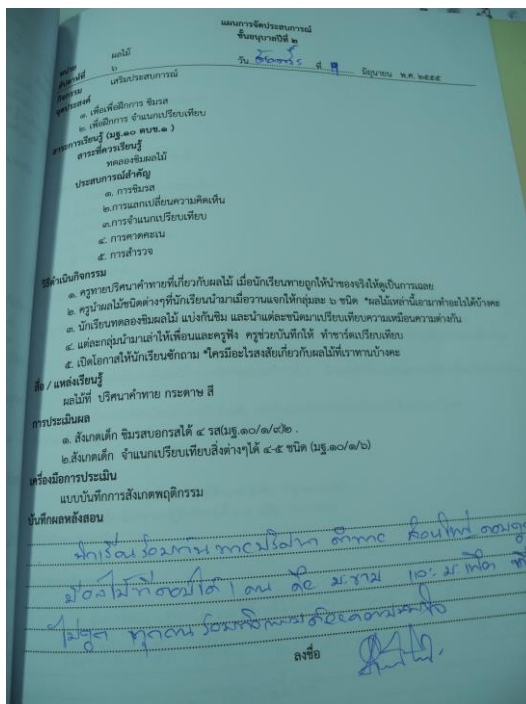 แผนการจัดประสบการณ์
ชั้นอนุบาลปีที่ ๒
หน่วย ผลไม้
สัปดาห์ที่ ๖ วัน อังคาร ที่ มิถุนายน พ.ศ. ๒๕๕๕
กิจกรรม เสริมประสบการณ์
จุดประสงค์
๑. เพื่อเพื่อฝึกการ ชิมรส
๒. เพื่อฝึกการ จำแนกเปรียบเทียบ
สาระการเรียนรู้ (มฐ.๑๐ ตบช.๑ )
สาระที่ควรเรียนรู้
ทดลองชิมผลไม้
ประสบการณ์สำคัญ
๑. การชิมรส
๒.การแลกเปลี่ยนความคิดเห็น
๓.การจำแนกเปรียบเทียบ
๔. การคาดคะเน
๕. การสำรวจ
วิธีดำเนินกิจกรรม
๑. ครูทายปริศนาคำทายที่เกี่ยวกับผลไม้ เมื่อนักเรียนทายถูกให้นำของจริงให้ดูเป็นการเฉลย
๒. ครูนำผลไม้ชนิดต่างๆที่นักเรียนนำมาเมื่อวานแจกให้กลุ่มละ ๖ ชนิด *ผลไม้เหล่านี้เอามาทำอะไรได้บ้างคะ
๓. นักเรียนทดลองชิมผลไม้ แบ่งกันชิม และนำแต่ละชนิดมาเปรียบเทียบความเหมือนความต่างกัน
๔. แต่ละกลุ่มนำมาเล่าให้เพื่อนและครูฟัง ครูช่วยบันทึกให้ ทำชาร์ตเปรียบเทียบ
๕. เปิดโอกาสให้นักเรียนซักถาม *ใครมีอะไรสงสัยเกี่ยวกับผลไม้ที่เราทานบ้างคะ
สื่อ / แหล่งเรียนรู้
ผลไม้ที่ ปริศนาคำทาย กระดาษ สี
การประเมินผล
๑. สังเกตเด็ก ชิมรสบอกรสได้ ๔ รส(มฐ.๑๐/๑/๙)๒ .
๒.สังเกตเด็ก จำแนกเปรียบเทียบสิ่งต่างๆได้ ๔-๕ ชนิด (มฐ.๑๐/๑/๖)
เครื่องมือการประเมิน
แบบบันทึกการสังเกตพฤติกรรม
บันทึกผลหลังสอน
นักเรียนร่วมกัน ทายปริศนา คำทาย ส่วนใหญ่ ตอบถูก
ตอบได้ 1 คน คือ มะขาม และ มะเฟือง ที่
ไม่ถูก ทุกคน ร่วมกิจกรรมด้วยความสนใจ
ลงชื่อ